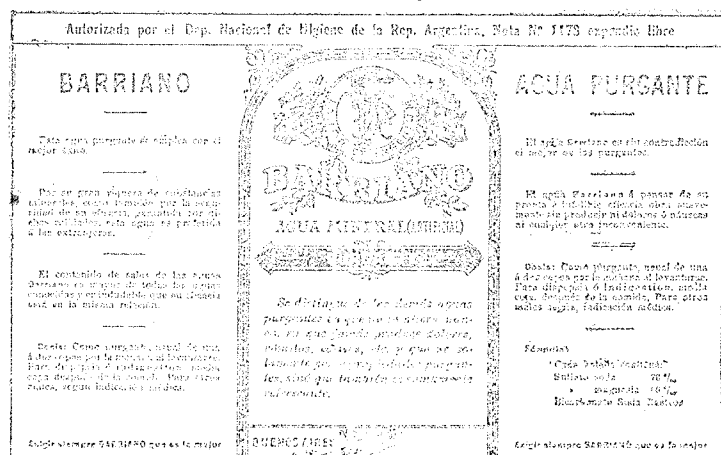 Autorizada por el Dep. Nacional de Higiene de la Rep. Argentina, Nota Nº 1173 expendio libre
BARRIANO
Esta agua purgante se emplea con el
mejor éxito.
Por su gran riqueza de substancias
minerales, como también por la segu-
ridad de su eficacia,
esta agua es preferida
á las extranjeras.
El contenido de sales de las aguas
Barriano es mayor de todas las aguas
conocidas y es indudable que su eficacia
está en la misma relación.
Dosis: Como purgante, usual de una
á dos copas por la mañana al levantarse.
Para dispepsia ó indigestion, media
copa después de la comida. Para otros
males, según indicación médica.
Exigir siempre BARRIANO que es la mejor
BARRIANO
AGUA MINERAL (ARTIFICIAL)
Se distingue de las demás aguas
purgantes en que no es
que jamás produce dolores,
náuseas, etc. y que no so-
lamente por sus propiedades purgan-
tes, sinó que también es sumamente
refrescante.
BUENOS AIRES
AGUA PURGANTE
El agua Barriano es sin contradicción
el mejor de los purgantes.
El agua Barriano á pesar de su
pronta é infalible eficacia obra suave-
mente sin producir ni dolores ó náuseas
ni cualquier otro inconveniente.
Dosis: Como purgante, usual de una
á dos copas por la mañana al levantarse.
Para dispepsia ó indigestion, media
copa después de la comida. Para otros
males según indicación médica.
Fórmula:
Cada botella contiene:
Sulfato soda
" magnesia
Bicarbonato Soda
Exigir siempre BARRIANO que es la mejor